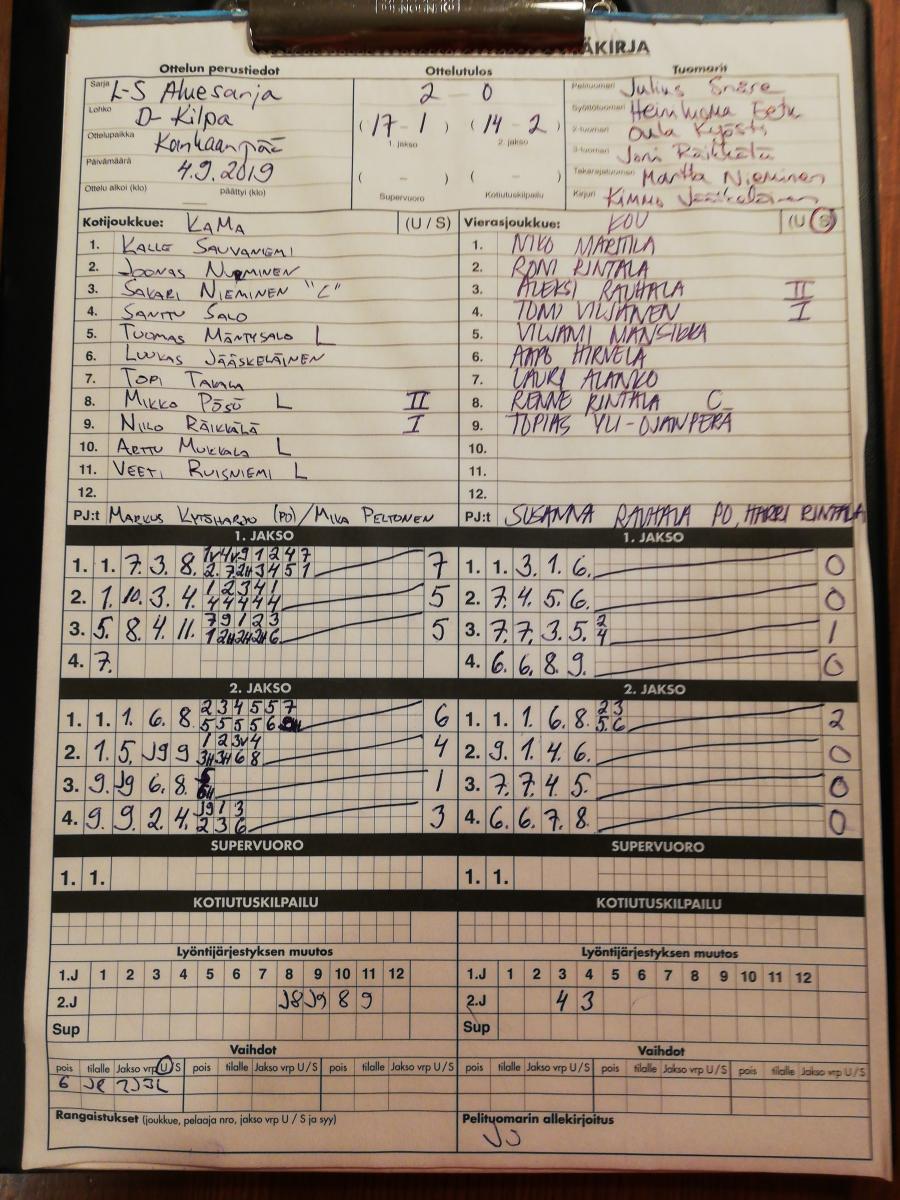 ÄKIRJA
Ottelun perustiedot Ottelutulos Tuomarit
Sarja L-S Aluesarja 2 - 0 Pelituomari Julius Snäre
Lohko D-Kilpa (17 - 1) (14 - 2) Syöttötuomari Eetu
Ottelupaikka Kankaanpää 1. jakso 2. jakso 2-tuomari Oula Kyösti
Päivämäärä 4.9.2019 3-tuomari Joni Räikkälä
( - ) ( - ) Takarajatuomari Martta Nieminen
Ottelu alkoi (klo) päättyi (klo) Supervuoro Kotiutuskilpailu Kirjuri Kimmo Jääskeläinen
Kotijoukkue: KaMa (U / S) Vierasjoukkue: KOU (U / S)
1. KALLE SAUVANIEMI 1. NIKO MARTTILA
2. JOONAS NURMINEN 2. RONI RINTALA
3. SAKARI NIEMINEN "C" 3. ALEKSI RAUHALA II
4. SANTTU SALO 4. TOMI VILJANEN I
5. TUOMAS MÄNTYSALO L 5. VILJAMI MANSIKKA
6. LUUKAS JÄÄSKELÄINEN 6. AAPO HIRVELÄ
7. TOPI TAKALA 7. LAURI ALANKO
8. MIKKO PÖSÖ L II 8. RENNE RINTALA C
9. NIILO RÄIKKÄLÄ I 9. TOPIAS YLI-OJANPERÄ
10. ARTTU MUKKALA L 10.
11. VEETI RUISNIEMI L 11.
12. 12.
PJ:t MARKUS KYTÖHARJU (PO) / MIKA PELTONEN PJ:t SUSANNA RAUHALA PO, HARRI RINTALA
1. JAKSO 1. JAKSO
1. 1. 7. 3. 8. 7 1. 1. 3. 1. 6. 0
2. 1. 10. 3. 4. 1 2 3 4 1 5 2. 7. 4. 5. 6. 0
4 4 4 4 4
3. 5. 8. 4. 11. 7 9 1 2 3 5 3. 7. 7. 3. 5. 2 1
4
4. 7. 4. 6. 6. 8. 9. 0
2. JAKSO 2. JAKSO
1. 1. 1. 6. 8. 2 3 4 5 5 7 6 1. 1. 1. 6. 8. 2 3 2
5 5 5 5 6 5. 6
2. 1. 5. J9 9 1 2 3v 4 4 2. 9. 1. 4. 6. 0
3H 3H 6 8
3. 9. J9 6. 8. 1 3. 7. 7. 4. 5. 0
4. 9. 9. 2. 4. J9 1 3 3 4. 6. 6. 7. 8. 0
2 3 6
SUPERVUORO SUPERVUORO
1. 1. 1. 1.
KOTIUTUSKILPAILU KOTIUTUSKILPAILU
Lyöntijärjestyksen muutos Lyöntijärjestyksen muutos
1.J 1 2 3 4 5 6 7 8 9 10 11 12 1.J 1 2 3 4 5 6 7 8 9 10 11 12
2.J J8 J9 8 9 2.J 4 3
Sup Sup
Vaihdot Vaihdot
pois tilalle Jakso vrp U / S pois tilalle Jakso vrp U / S pois tilalle Jakso vrp U / S pois tilalle Jakso vrp U / S pois tilalle Jakso vrp U / S pois tilalle Jakso vrp U / S
6
Rangaistukset (joukkue, pelaaja nro, jakso vrp U / S ja syy) Pelituomarin allekirjoitus